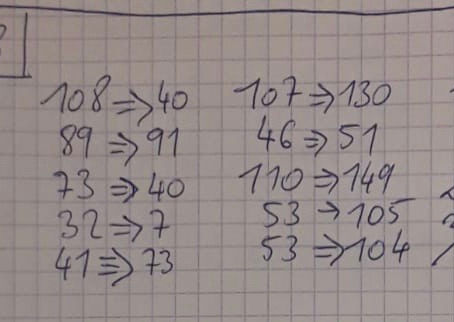 108 => 40
89 => 91
73 => 40
32 => 7
41 => 73
107 => 130
46 => 51
110 => 149
53 -> 105
53 => 104